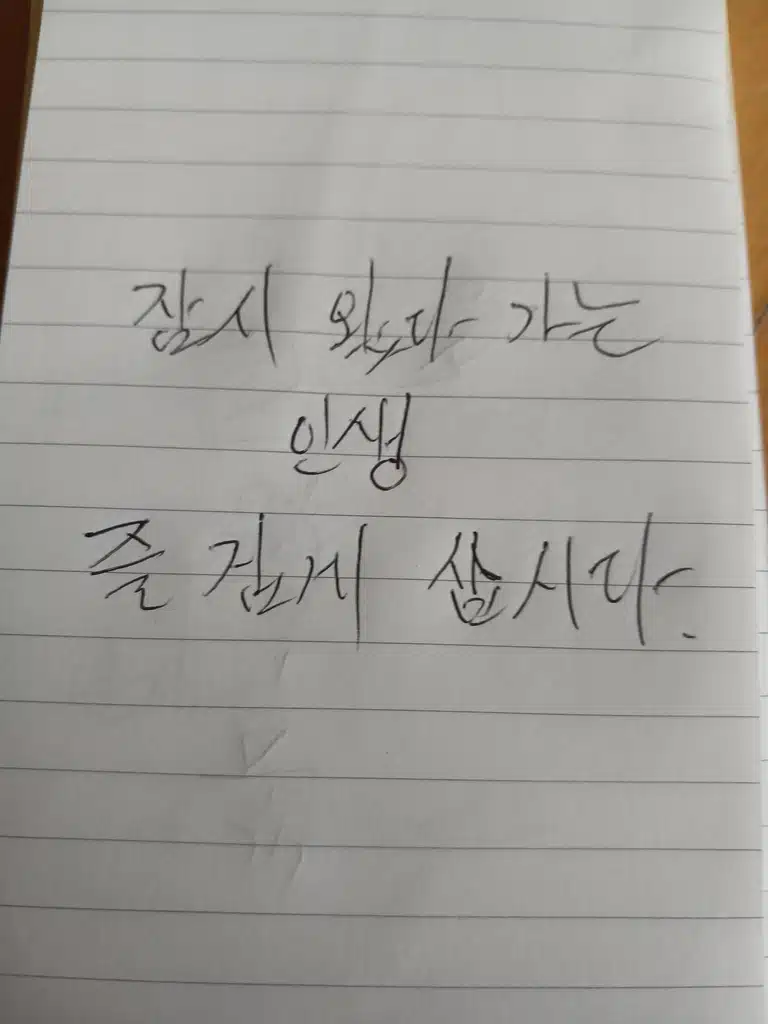 잠시 왔다 가는
인생
즐겁게 삽시다.